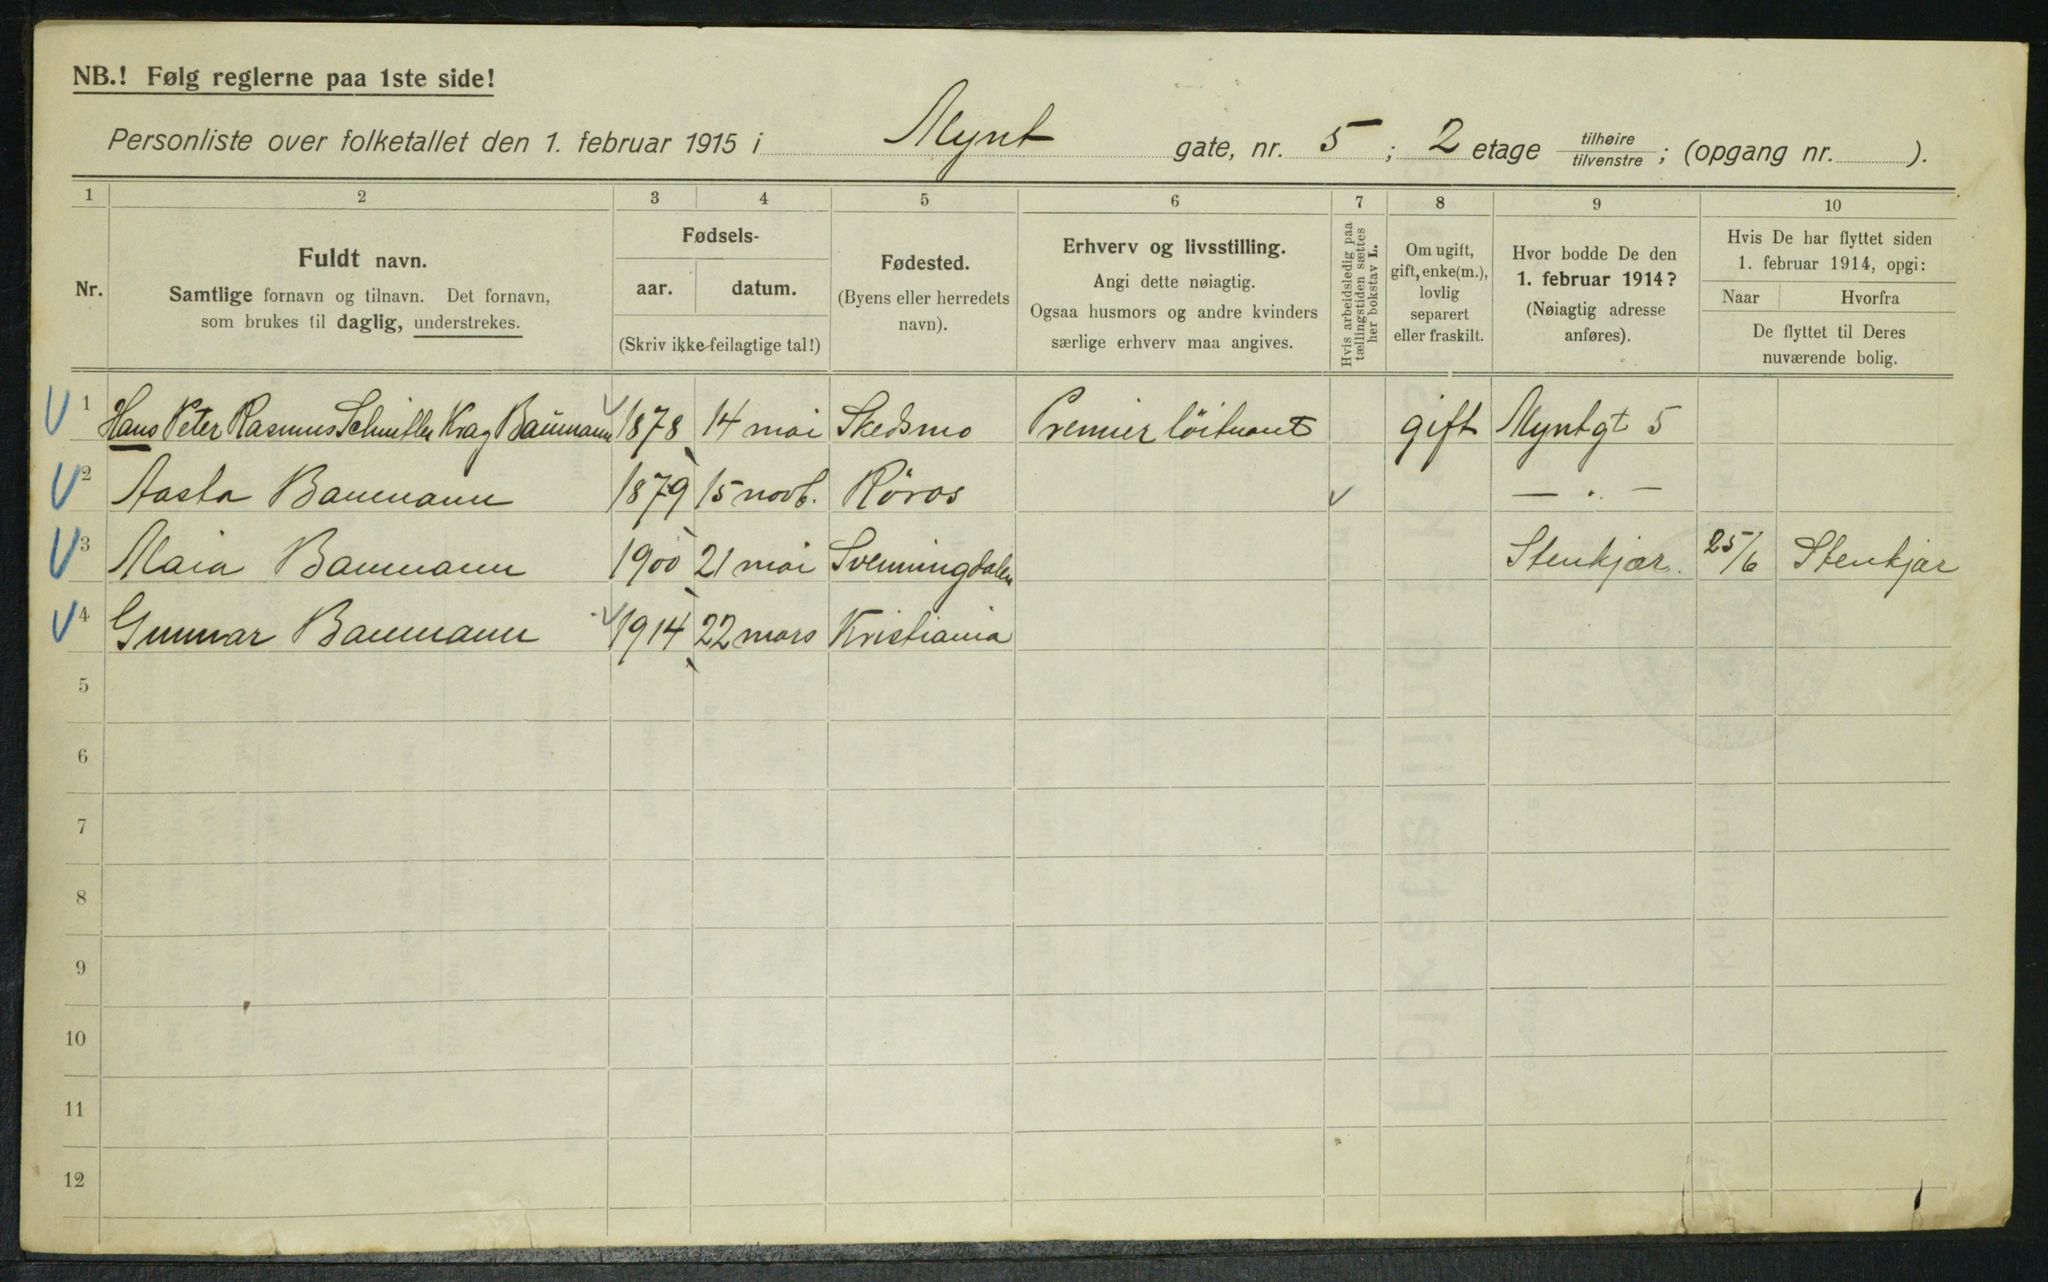 NB.! Følg reglerne paa 1ste side!
Personliste over folketallet den 1. februar 1915 i Mynt gate, nr. 5 ; 2 etage tilhøire / tilvenstre ; (opgang nr. ).
1 2 3 4 5 6 7 8 9 10
Nr.
Fuldt navn.
Samtlige fornavn og tilnavn. Det fornavn,
som brukes til daglig, understrekes.
Fødsels-
aar. datum.
(Skriv ikke feilagtige tal!)
Fødested.
(Byens eller herredets
navn).
Erhverv og livsstilling.
Angi dette nøiagtig.
Ogsaa husmors og andre kvinders
særlige erhverv maa angives.
Hvis arbeidsledig paa
tællingstiden sættes
her bokstav L.
Om ugift,
gift, enke(m.),
lovlig
separert
eller fraskilt.
Hvor bodde De den
1. februar 1914?
(Nøiagtig adresse
anføres).
Hvis De har flyttet siden
1. februar 1914, opgi:
Naar Hvorfra
De flyttet til Deres
nuværende bolig.
1 Hans Peter Rasmus Schnitler Krag Baumann 1878 14 mai Skedsmo Premier løitnant gift Myntgt 5
2 Aasta Baumann 1879 15 novb. Røros — " —
3 Maia Baumann 1900 21 mai Svenningdalen Stenkjær. 25/6 Stenkjær
4 Gunnar Baumann 1914 22 mars Kristiania
5
6
7
8
9
10
11
12